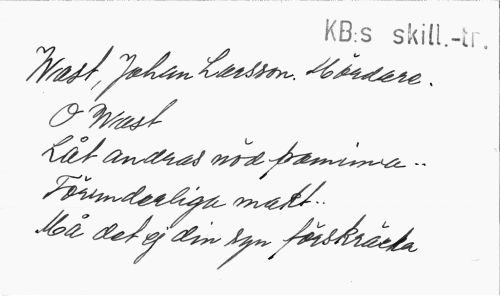 KB:s skill.-tr.
Wast, Johan Larsson. Mördare.
O Wast
Låt andras nöd påminna..
Förunderliga makt..
Må det ej din syn förskräcka